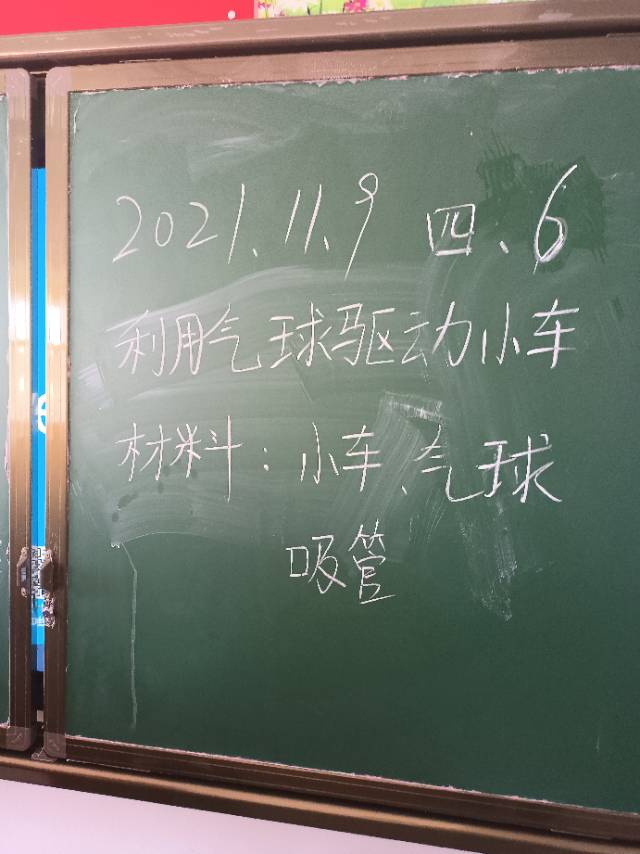 2021.11.9 四、6
利用气球驱动小车
材料：小车、气球
吸管